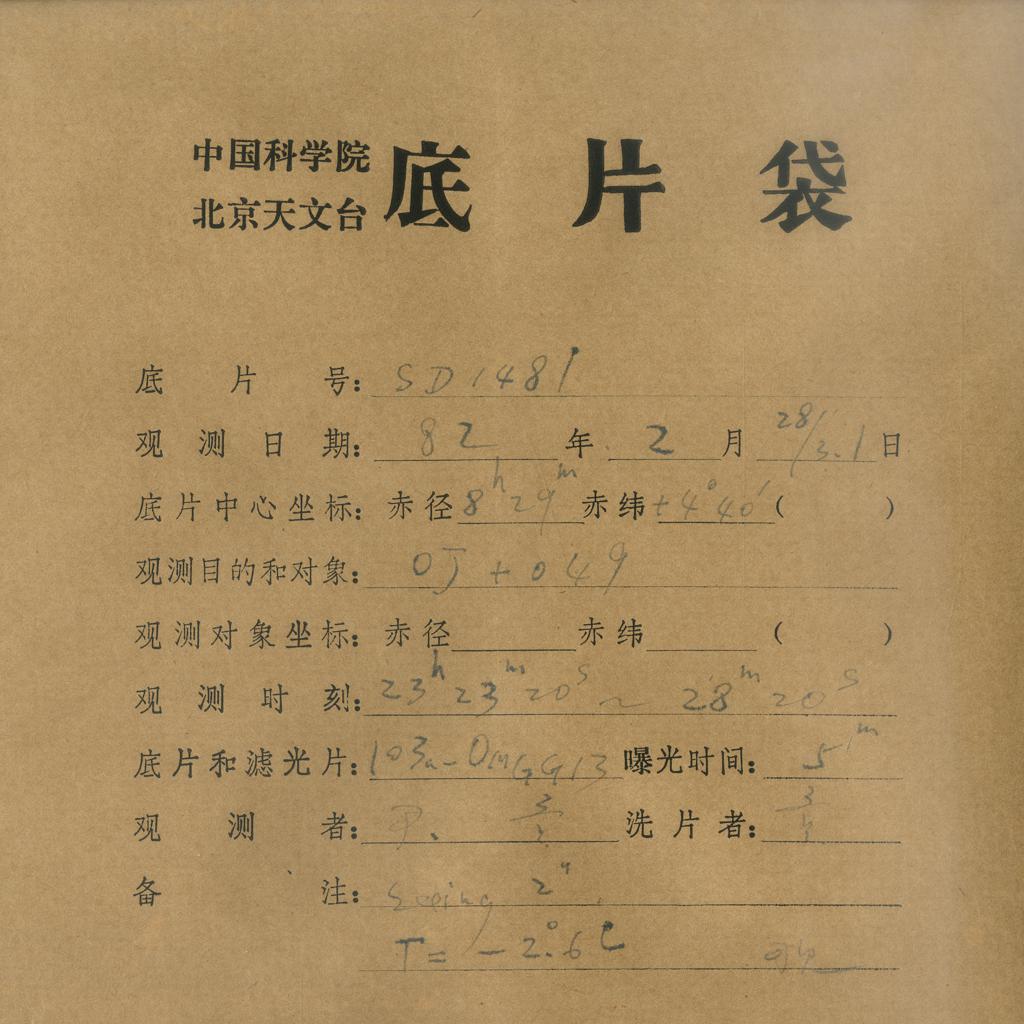 中国科学院
北京天文台
底片袋
底片号: SD1481
观测日期: 82年2月28/3.1日
底片中心坐标: 赤径8h29m赤纬+4°40′( )
观测目的和对象: OJ+049
观测对象坐标: 赤径 赤纬 ( )
观测时刻: 23h23m20s~28m20s
底片和滤光片: 103a-O GG13 曝光时间: 5m
观测者: 洗片者:
备注: Seeing 2"
T=-2.°6C